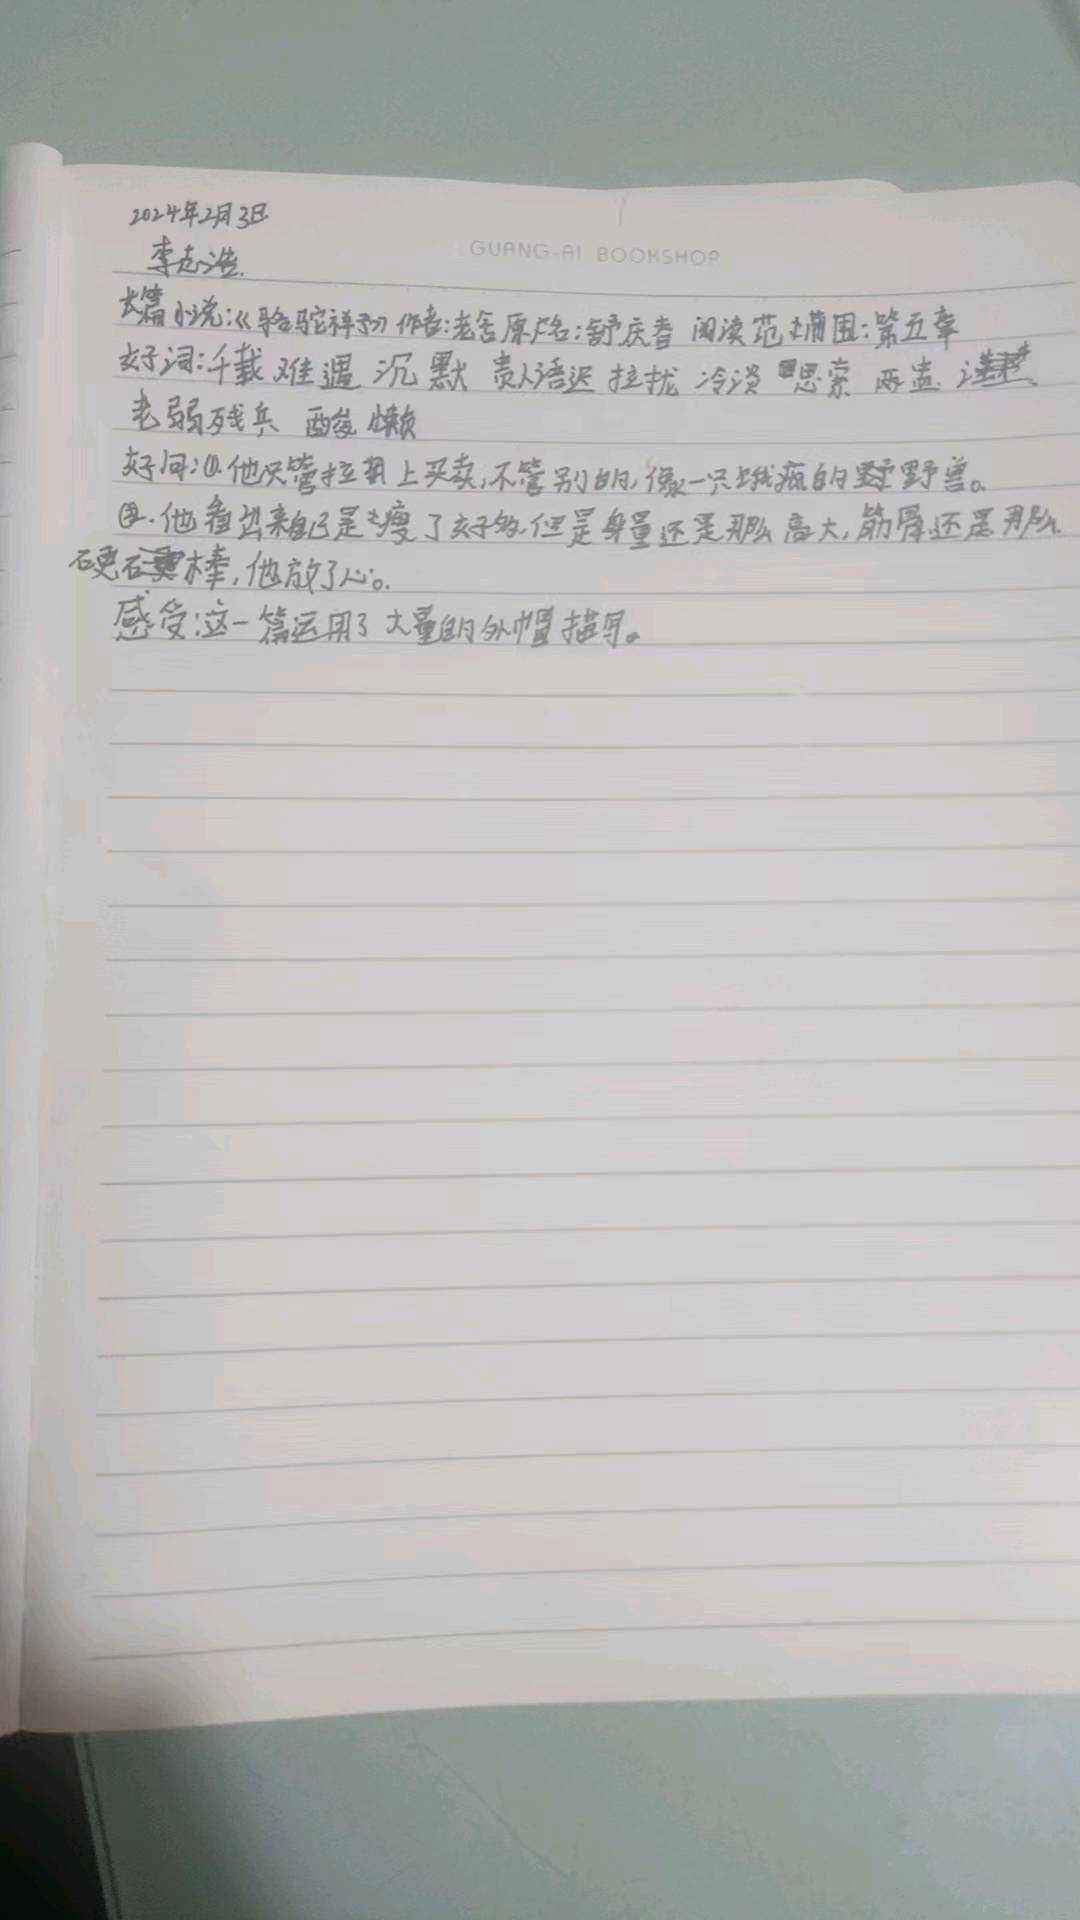 2024年2月3日
李志浩
GUANG-AI BOOKSHOP
长篇小说:《骆驼祥子》作者:老舍 原名:舒庆春 阅读范围:第五章
好词:千载难遇 沉默 贵人语迟 拉扰 冷淡 思索
老弱残兵 酸懒
好句:①.他只管拉着上买卖,不管别的,像一只饿疯的野兽。
②.他看出来自己是瘦了好多,但是身量还是那么高大,筋骨还是那么
硬棒,他放了心。
感受:这一篇运用了大量的外帽描写。